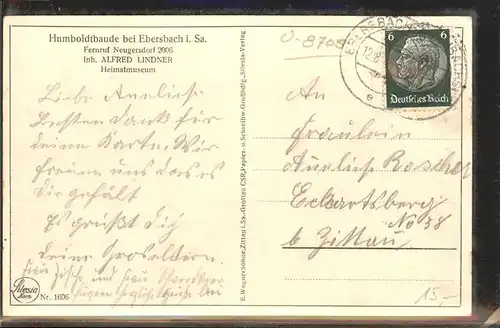 Humboldtbaude bei Ebersbach i. Sa.
Fernruf Neugersdorf 2006
Inh. ALFRED LINDNER
Heimatmuseum
Liebe Anneliese
Besten Dank für
deine Karte. Wir
freuen uns das es
dir gefällt
Es grüßt dich
deine Großeltern.
Frau und Frau
Silesia
Karte
Nr. 1606
E. Wagner Söhne, Zittau i. Sa.-Grottau CSR, Papier- u. Schreibw.-Großhdlg., Silesia-Verlag
O-8705
EBERSBACH
12.8
e
6 6
Deutsches Reich
An
Fräulein
Annliese
Eckartsberg
No 38
b. Zittau
15,-